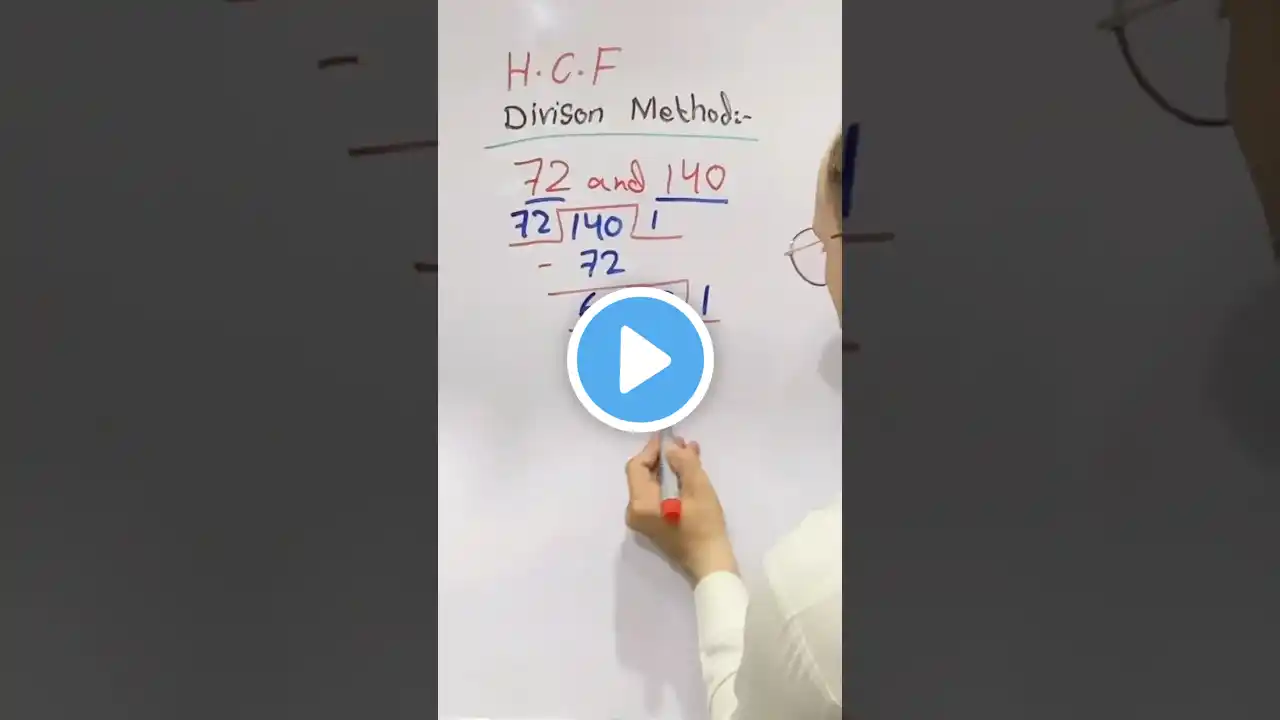 H.C.F
Divison Method:-
72 and 140
72 140 1
- 72
6 1